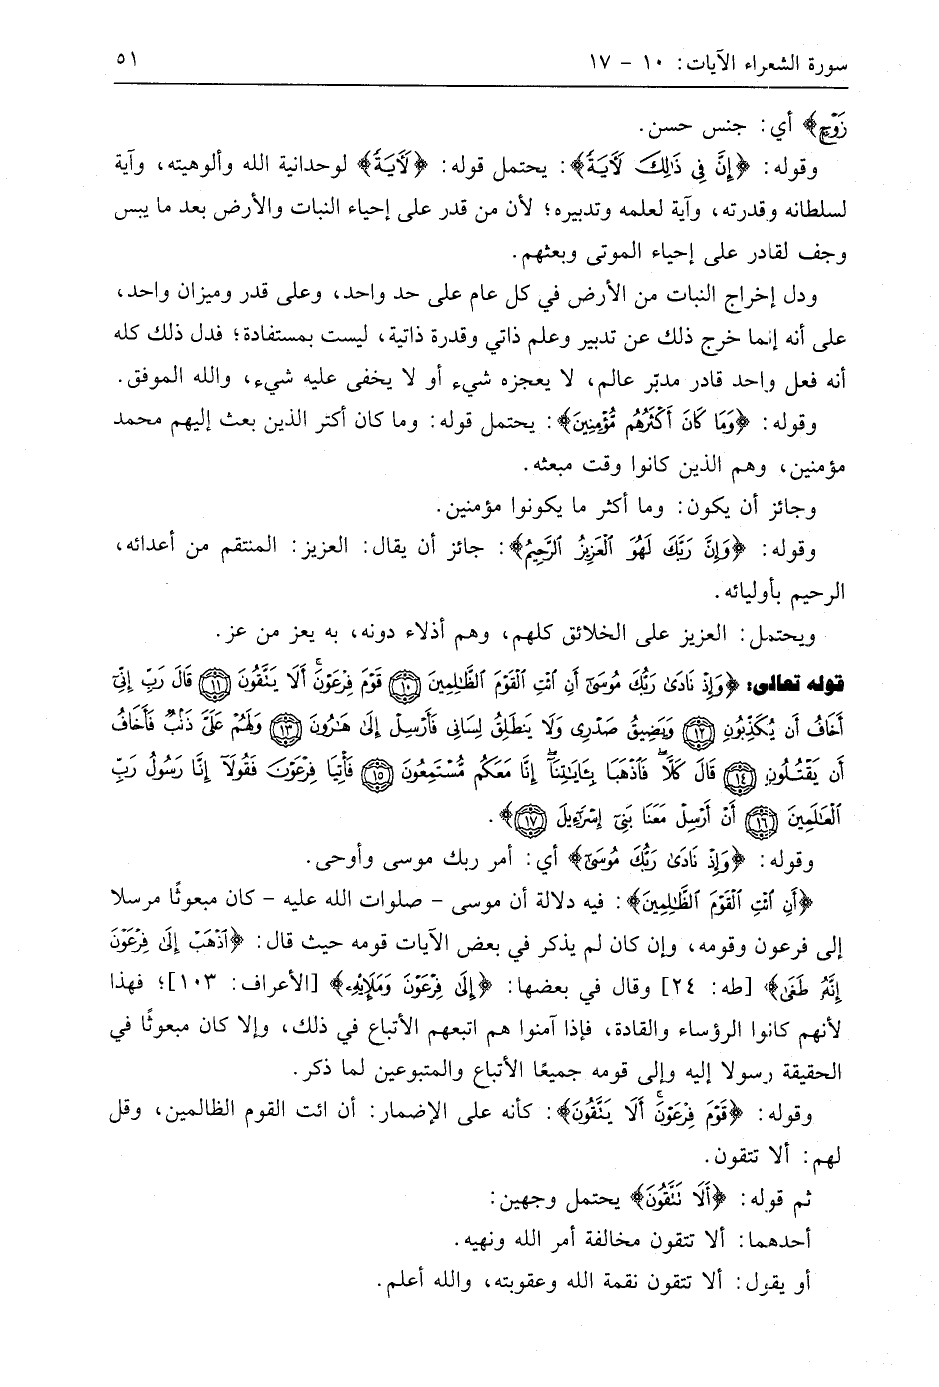 سورة الشعراء الآيات: ١٠ - ١٧ ٥١
زَوْجٍ﴾ أي: جنس حسن.
وقوله: ﴿إِنَّ فِى ذَٰلِكَ لَأَيَةً﴾: يحتمل قوله: ﴿لَأَيَةً﴾ لوحدانية الله وألوهيته، وآية
لسلطانه وقدرته، وآية لعلمه وتدبيره؛ لأن من قدر على إحياء النبات والأرض بعد ما يبس
وجف لقادر على إحياء الموتى وبعثهم.
ودل إخراج النبات من الأرض في كل عام على حد واحد، وعلى قدر وميزان واحد،
على أنه إنما خرج ذلك عن تدبير وعلم ذاتي وقدرة ذاتية، ليست بمستفادة؛ فدل ذلك كله
أنه فعل واحد قادر مدبّر عالم، لا يعجزه شيء أو لا يخفى عليه شيء، والله الموفق.
وقوله: ﴿وَمَا كَانَ أَكْثَرُهُم مُّؤْمِنِينَ﴾: يحتمل قوله: وما كان أكثر الذين بعث إليهم محمد
مؤمنين، وهم الذين كانوا وقت مبعثه.
وجائز أن يكون: وما أكثر ما يكونوا مؤمنين.
وقوله: ﴿وَإِنَّ رَبَّكَ لَهُوَ ٱلْعَزِيزُ ٱلرَّحِيمُ﴾: جائز أن يقال: العزيز: المنتقم من أعدائه،
الرحيم بأوليائه.
ويحتمل: العزيز على الخلائق كلهم، وهم أذلاء دونه، به يعز من عز.
قوله تعالى: ﴿وَإِذْ نَادَىٰ رَبُّكَ مُوسَىٰٓ أَنِ ٱئْتِ ٱلْقَوْمَ ٱلظَّٰلِمِينَ ۝١٠ قَوْمَ فِرْعَوْنَۚ أَلَا يَتَّقُونَ ۝١١ قَالَ رَبِّ إِنِّىٓ
أَخَافُ أَن يُكَذِّبُونِ ۝١٢ وَيَضِيقُ صَدْرِى وَلَا يَنطَلِقُ لِسَانِى فَأَرْسِلْ إِلَىٰ هَٰرُونَ ۝١٣ وَلَهُمْ عَلَىَّ ذَنۢبٌ فَأَخَافُ
أَن يَقْتُلُونِ ۝١٤ قَالَ كَلَّاۖ فَٱذْهَبَا بِـَٔايَٰتِنَآۖ إِنَّا مَعَكُم مُّسْتَمِعُونَ ۝١٥ فَأْتِيَا فِرْعَوْنَ فَقُولَآ إِنَّا رَسُولُ رَبِّ
ٱلْعَٰلَمِينَ ۝١٦ أَنْ أَرْسِلْ مَعَنَا بَنِىٓ إِسْرَٰٓءِيلَ ۝١٧﴾.
وقوله: ﴿وَإِذْ نَادَىٰ رَبُّكَ مُوسَىٰٓ﴾ أي: أمر ربك موسى وأوحى.
﴿أَنِ ٱئْتِ ٱلْقَوْمَ ٱلظَّٰلِمِينَ﴾: فيه دلالة أن موسى - صلوات الله عليه - كان مبعوثًا مرسلا
إلى فرعون وقومه، وإن كان لم يذكر في بعض الآيات قومه حيث قال: ﴿ٱذْهَبْ إِلَىٰ فِرْعَوْنَ
إِنَّهُۥ طَغَىٰ﴾ [طه: ٢٤] وقال في بعضها: ﴿إِلَىٰ فِرْعَوْنَ وَمَلَإِي۟هِۦ﴾ [الأعراف: ١٠٣]؛ فهذا
لأنهم كانوا الرؤساء والقادة، فإذا آمنوا هم اتبعهم الأتباع في ذلك، وإلا كان مبعوثًا في
الحقيقة رسولا إليه وإلى قومه جميعًا الأتباع والمتبوعين لما ذكر.
وقوله: ﴿قَوْمَ فِرْعَوْنَۚ أَلَا يَتَّقُونَ﴾: كأنه على الإضمار: أن ائت القوم الظالمين، وقل
لهم: ألا تتقون.
ثم قوله: ﴿أَلَا تَتَّقُونَ﴾ يحتمل وجهين:
أحدهما: ألا تتقون مخالفة أمر الله ونهيه.
أو يقول: ألا تتقون نقمة الله وعقوبته، والله أعلم.